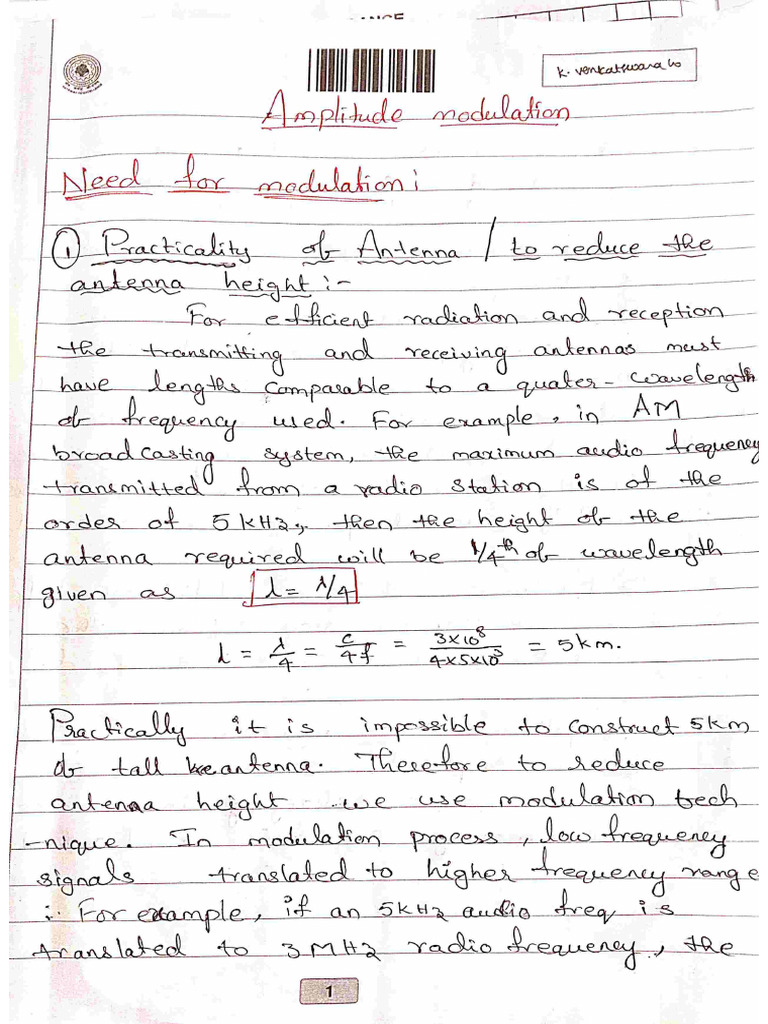 K. Venkateswara lo
Amplitude modulation
Need for modulation:
① Practicality of Antenna / to reduce the
antenna height :-
For efficient radiation and reception
the transmitting and receiving antennas must
have lengths comparable to a quater-wavelength
of frequency used. For example, in AM
broadcasting system, the maximum audio frequency
transmitted from a radio station is of the
order of 5 kHz, then the height of the
antenna required will be 1/4th of wavelength
given as l = λ/4
l = λ/4 = c/4f = 3×10⁸/4×5×10³ = 5km.
Practically it is impossible to construct 5km
of tall antenna. Therefore to reduce
antenna height we use modulation tech
-nique. In modulation process, low frequency
signals translated to higher frequency range
∴ For example, if an 5kHz audio freq is
translated to 3MHz radio frequency, the
1